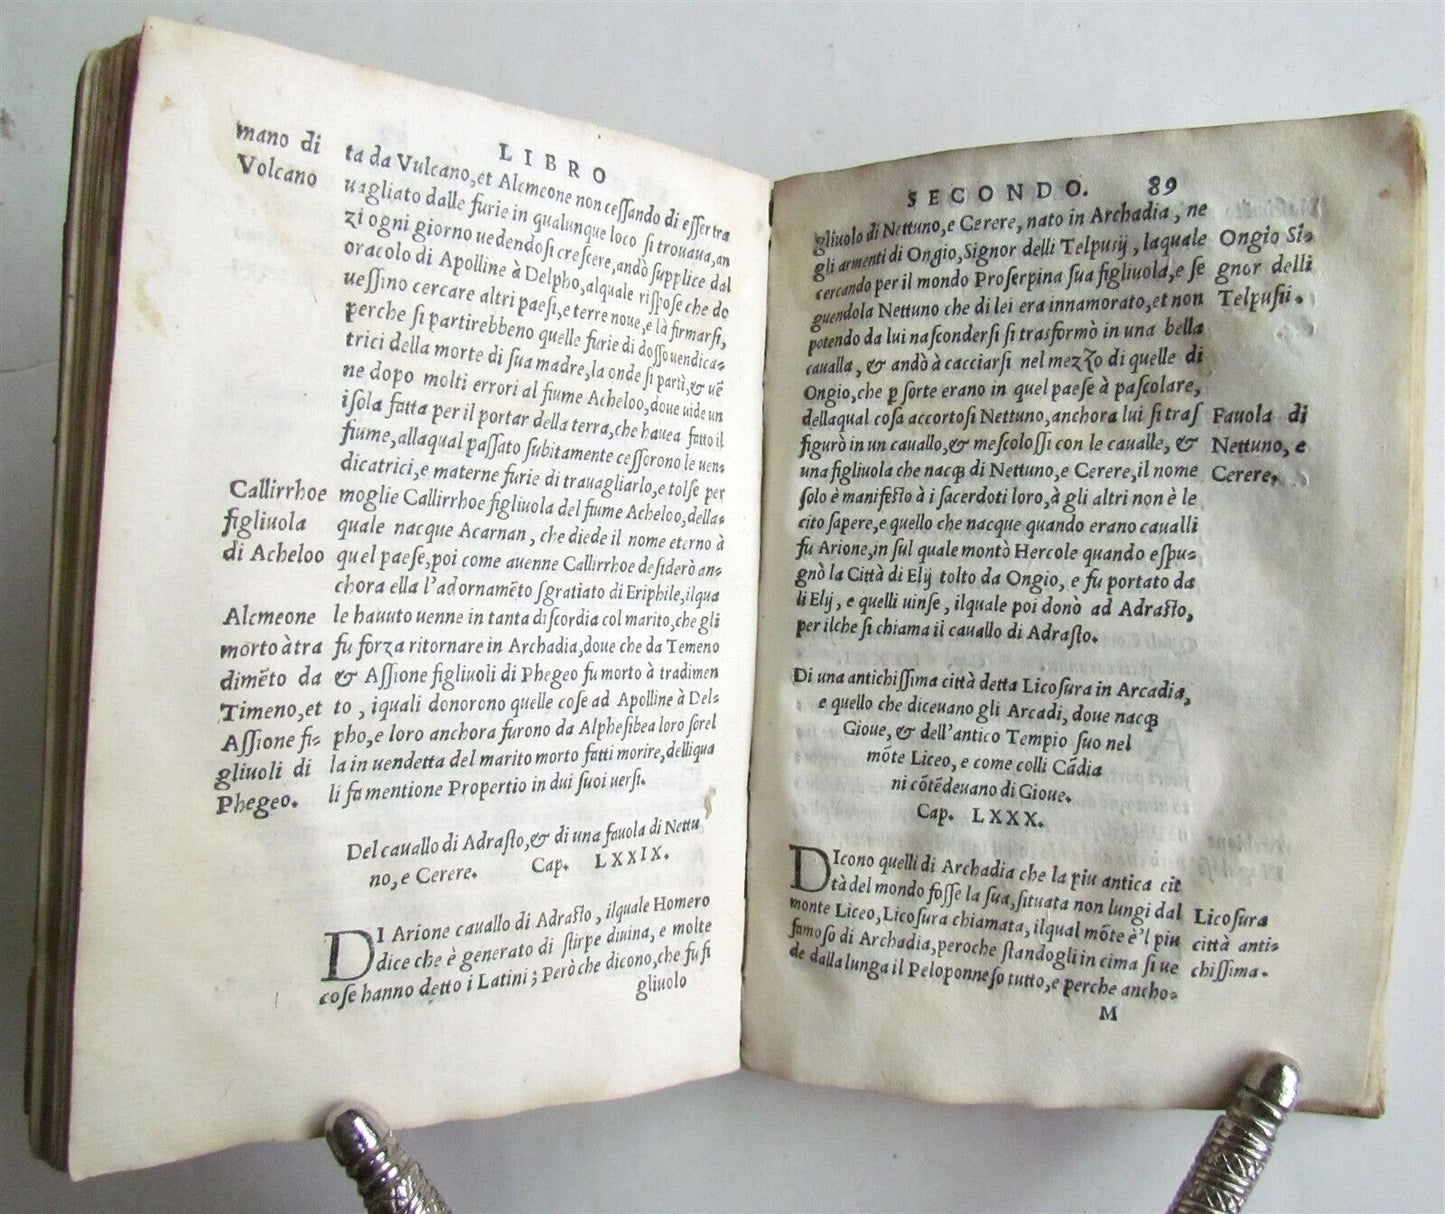 LIBRO
mano di
Volcano
ta da Vulcano, et Alcmeone non ceſſando di eſſer tra
uagliato dalle furie in qualunque loco ſi trouaua, an
zi ogni giorno uedendoſi creſcere, andò ſupplice dal
oracolo di Apolline à Delpho, alquale riſpoſe che do
ueſſino cercare altri paeſi, e terre noue, e là firmarſi,
perche ſi partirebbeno quelle furie di doſſo uendica=
trici della morte di ſua madre, la onde ſi partì, & uē
ne dopo molti errori al fiume Acheloo, doue uide un
iſola fatta per il portar della terra, che hauea fatto il
fiume, allaqual paſſato ſubitamente ceſſorono le uen=
dicatrici, e materne furie di trauagliarlo, e tolſe per
Callirrhoe
figliuola
di Acheloo
moglie Callirrhoe figliuola del fiume Acheloo, della=
quale nacque Acarnan, che diede il nome eterno à
quel paeſe, poi come auenne Callirrhoe deſiderò an=
chora ella l'adornamēto ſgratiato di Eriphile, ilqua
Alcmeone
morto à tra
dimēto da
Timeno, et
Aſſione fi=
gliuoli di
Phegeo.
le hauuto uenne in tanta diſcordia col marito, che gli
fu forza ritornare in Archadia, doue che da Temeno
& Aſſione figliuoli di Phegeo fu morto à tradimen
to, iquali donorono quelle coſe ad Apolline à Del=
pho, e loro anchora furono da Alpheſibea loro ſorel
la in uendetta del marito morto fatti morire, delliqua
li fa mentione Propertio in dui ſuoi uerſi.
Del cauallo di Adraſto, & di una fauola di Nettu
no, e Cerere. Cap. LXXIX.
DI Arione cauallo di Adraſto, ilquale Homero
dice che è generato di ſtirpe diuina, e molte
coſe hanno detto i Latini; Però che dicono, che fu fi
gliuolo
SECONDO. 89
gliuolo di Nettuno, e Cerere, nato in Archadia, ne
gli armenti di Ongio, Signor delli Telpusÿ, laquale
cercando per il mondo Proſerpina ſua figliuola, e ſe
guendola Nettuno che di lei era innamorato, et non
potendo da lui naſconderſi ſi trasformò in una bella
caualla, & andò à cacciarſi nel mezzo di quelle di
Ongio, che ꝑ ſorte erano in quel paeſe à paſcolare,
dellaqual coſa accortoſi Nettuno, anchora lui ſi traſ
figurò in un cauallo, & meſcoloſſi con le caualle, &
una figliuola che nacꝗ di Nettuno, e Cerere, il nome
ſolo è manifeſto à i ſacerdoti loro, à gli altri non è le
cito ſapere, e quello che nacque quando erano caualli
fu Arione, in ſul quale montò Hercole quando eſpu=
gnò la Città di Elÿ tolto da Ongio, e fu portato da
li Elÿ, e quelli uinſe, ilquale poi donò ad Adraſto,
per ilche ſi chiama il cauallo di Adraſto.
Ongio Si=
gnor delli
Telpuſii.
Fauola di
Nettuno, e
Cerere.
Di una antichiſſima città detta Licoſura in Arcadia,
e quello che diceuano gli Arcadi, doue nacꝗ
Gioue, & dell'antico Tempio ſuo nel
mōte Liceo, e come colli Cādia
ni cōtēdeuano di Gioue.
Cap. LXXX.
DIcono quelli di Archadia che la piu antica cit
tà del mondo foſſe la ſua, ſituata non lungi dal
monte Liceo, Licoſura chiamata, ilqual mōte è'l piu
famoſo di Archadia, peroche ſtandogli in cima ſi ue
de dalla lunga il Peloponneſo tutto, e perche ancho=
Licoſura
città anti=
chiſſima.
M